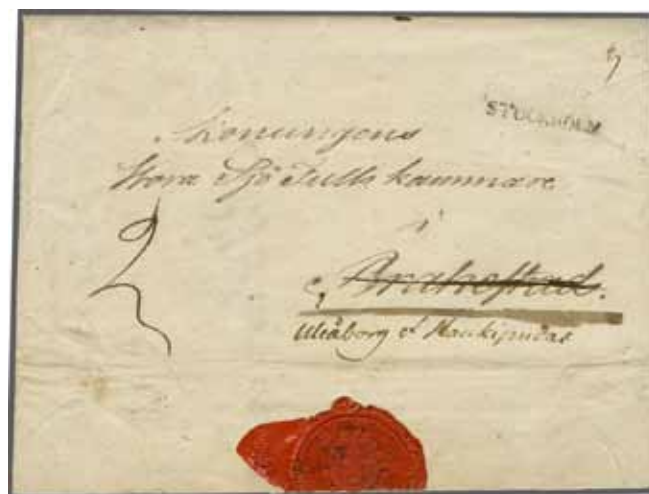 STOCKHOLM
Konungens
Stora Sjö Tulls kammare
i
Brahestad.
2
Uleåborg et Haukipudas